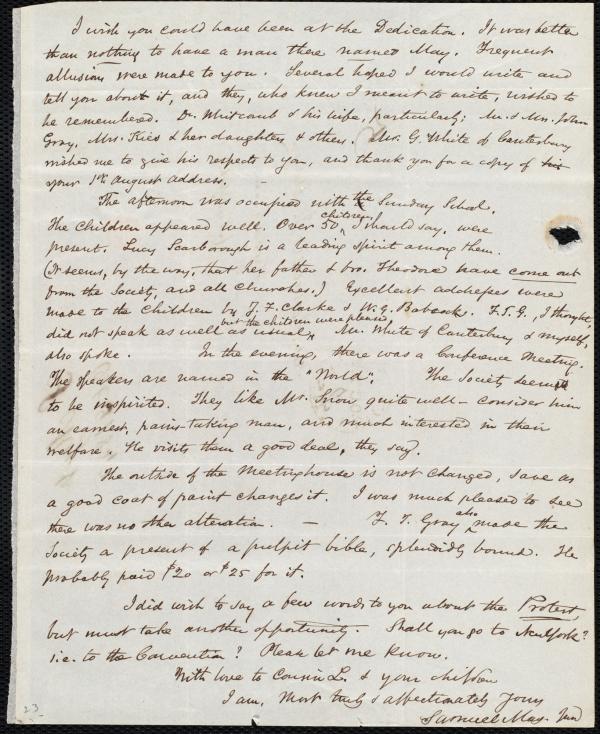 I wish you could have been at the Dedication. It was better
than nothing to have a man there named May. Frequent
allusions were made to you. Several hoped I would write and
tell you about it, and they, who knew I meant to write, wished to
be remembered. Dr. Whitcomb & his wife, particularly; Mr. & Mrs. John
Gray, Mrs. Kies & her daughters & others. Mr. G. White of Canterbury
wished me to give his respects to you, and thank you for a copy of his
your 1st August address.
The afternoon was occupied with the Sunday School.
The children appeared well. Over 50 children, I should say, were
present. Lucy Scarborough is a leading spirit among them.
(It seems, by the way, that her father & bro. Theodore have come out
from the Society, and all Churches.) Excellent addresses were
made to the children by J. F. Clarke & W. G. Babcock. F. T. G., I thought,
did not speak as well as usual, but the children were pleased. Mr. White of Canterbury & myself,
also spoke. In the evening, there was a Conference Meeting.
The speakers are named in the "World". The Society seemed
to be inspirited. They like Mr. Snow quite well – consider him
an earnest, pains-taking man, and much interested in their
welfare. He visits them a good deal, they say.
The outside of the Meetinghouse is not changed, save as
a good coat of paint changes it. I was much pleased to see
there was no other alteration. — F. T. Gray also made the
Society a present of a pulpit bible, splendidly bound. He
probably paid $20 or $25 for it.
I did wish to say a few words to you about the Protest,
but must take another opportunity. Shall you go to New York?
i.e. to the Convention? Please let me know.
With love to Cousin L. & your children
I am, Most truly & affectionately Yours
Samuel May. Jun
23